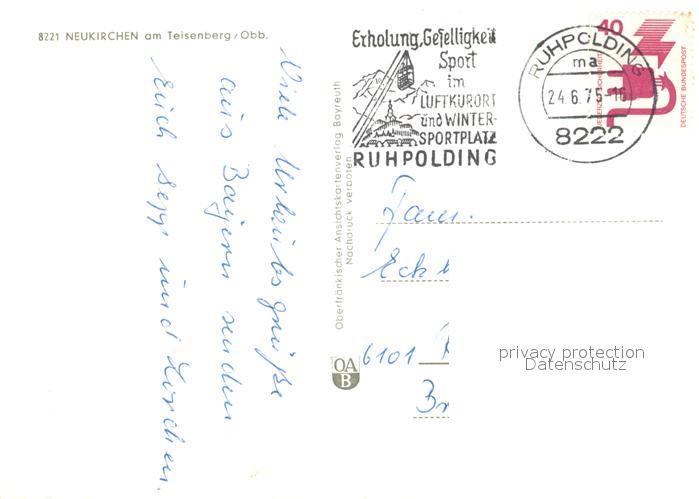 8221 NEUKIRCHEN am Teisenberg/Obb.
Viele Urlaubsgrüße
aus Bayern senden
Euch Sepp und Lorchen.
Oberfränkischer Ansichtskartenverlag Bayreuth
Nachdruck verboten
OA
B
Erholung, Geselligkeit
Sport
im
LUFTKURORT
und WINTER-
SPORTPLATZ
RUHPOLDING
RUHPOLDING
ma
24.6.75-16
8222
40
JEDERZEIT SICHERHEIT
DEUTSCHE BUNDESPOST
Fam.
Eck
6101
Br
privacy protection
Datenschutz